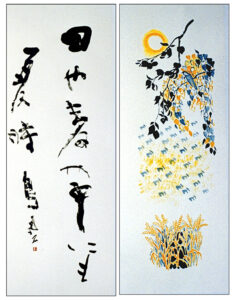 田や麦や中にも
夏時鳥